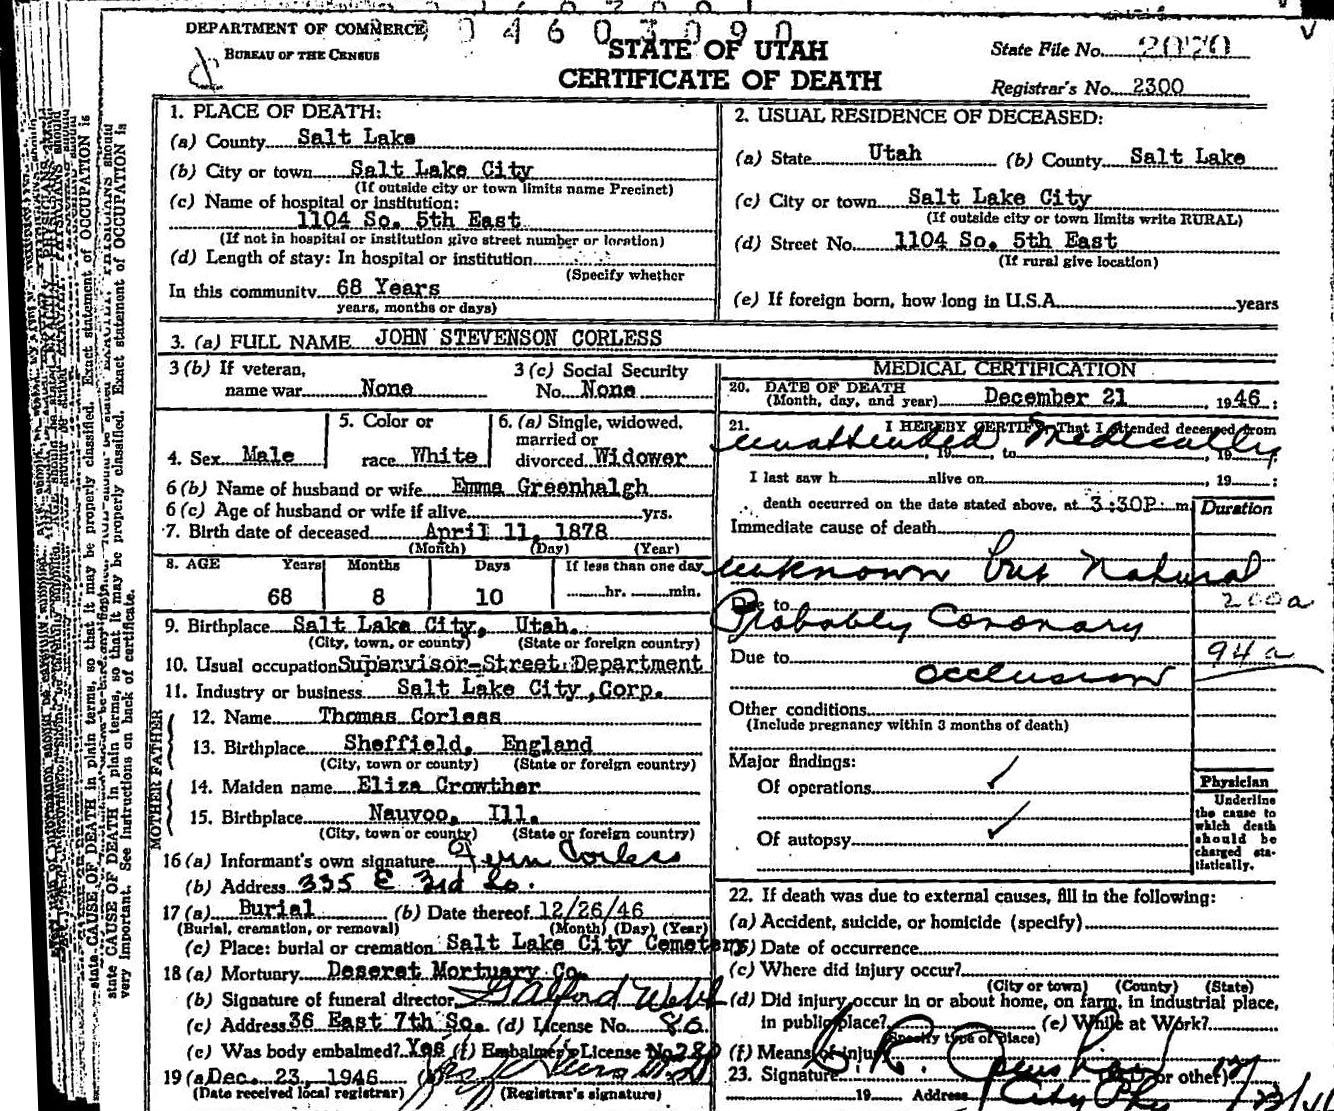 DEPARTMENT OF COMMERCE
BUREAU OF THE CENSUS
04603090
STATE OF UTAH
CERTIFICATE OF DEATH
State File No. 2020
Registrar's No. 2300
1. PLACE OF DEATH:
(a) County Salt Lake
(b) City or town Salt Lake City
(If outside city or town limits name Precinct)
(c) Name of hospital or institution:
1104 So. 5th East
(If not in hospital or institution give street number or location)
(d) Length of stay: In hospital or institution
(Specify whether
In this community 68 Years
years, months or days)
2. USUAL RESIDENCE OF DECEASED:
(a) State Utah (b) County Salt Lake
(c) City or town Salt Lake City
(If outside city or town limits write RURAL)
(d) Street No. 1104 So. 5th East
(If rural give location)
(e) If foreign born, how long in U.S.A. years
3. (a) FULL NAME JOHN STEVENSON CORLESS
3 (b) If veteran,
name war None
3 (c) Social Security
No. None
4. Sex Male
5. Color or
race White
6. (a) Single, widowed,
married or
divorced Widower
6 (b) Name of husband or wife Emma Greenhalgh
6 (c) Age of husband or wife if alive yrs.
7. Birth date of deceased April 11, 1878
(Month) (Day) (Year)
8. AGE Years Months Days If less than one day
68 8 10 hr. min.
9. Birthplace Salt Lake City, Utah.
(City, town, or county) (State or foreign country)
10. Usual occupation Supervisor-Street Department
11. Industry or business Salt Lake City, Corp.
FATHER
12. Name Thomas Corless
13. Birthplace Sheffield, England
(City, town or county) (State or foreign country)
MOTHER
14. Maiden name Eliza Crowther
15. Birthplace Nauvoo, Ill.
(City, town or county) (State or foreign country)
16 (a) Informant's own signature Fern Corless
(b) Address 335 E 3rd So.
17 (a) Burial (b) Date thereof 12/26/46
(Burial, cremation, or removal) (Month) (Day) (Year)
(c) Place: burial or cremation Salt Lake City Cemetery
18 (a) Mortuary Deseret Mortuary Co.
(b) Signature of funeral director
(c) Address 36 East 7th So. (d) License No. 86
(e) Was body embalmed? Yes (f) Embalmer's License No. 280
19 (a) Dec. 23, 1946
(Date received local registrar) (Registrar's signature)
MEDICAL CERTIFICATION
20. DATE OF DEATH
(Month, day, and year) December 21, 1946
21. I HEREBY CERTIFY That I attended deceased from
unattended medically
, 19 , to , 19 ;
I last saw h alive on , 19 ;
death occurred on the date stated above, at 3:30P. m.
Duration
Immediate cause of death
unknown but Natural
200a
Due to
Probably Coronary
Due to 94a
occlusion
Other conditions
(Include pregnancy within 3 months of death)
Major findings:
Of operations ✓
Of autopsy ✓
Physician
Underline
the cause to
which death
should be
charged sta-
tistically.
22. If death was due to external causes, fill in the following:
(a) Accident, suicide, or homicide (specify)
(b) Date of occurrence
(c) Where did injury occur?
(City or town) (County) (State)
(d) Did injury occur in or about home, on farm, in industrial place,
in public place? (e) While at Work?
(Specify type of place)
(f) Means of injury
23. Signature or other)
19 Address City
state CAUSE OF DEATH in plain terms, so that it may be properly classified. Exact statement of OCCUPATION is
very important. See instructions on back of certificate.